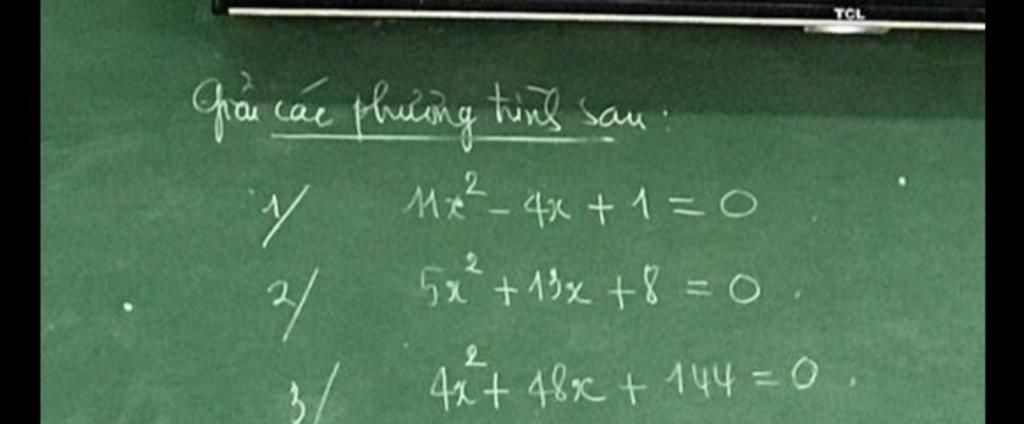 TCL
Giải các phương trình sau:
1/ 11x² - 4x + 1 = 0
2/ 5x² + 13x + 8 = 0.
3/ 4x² + 48x + 144 = 0.